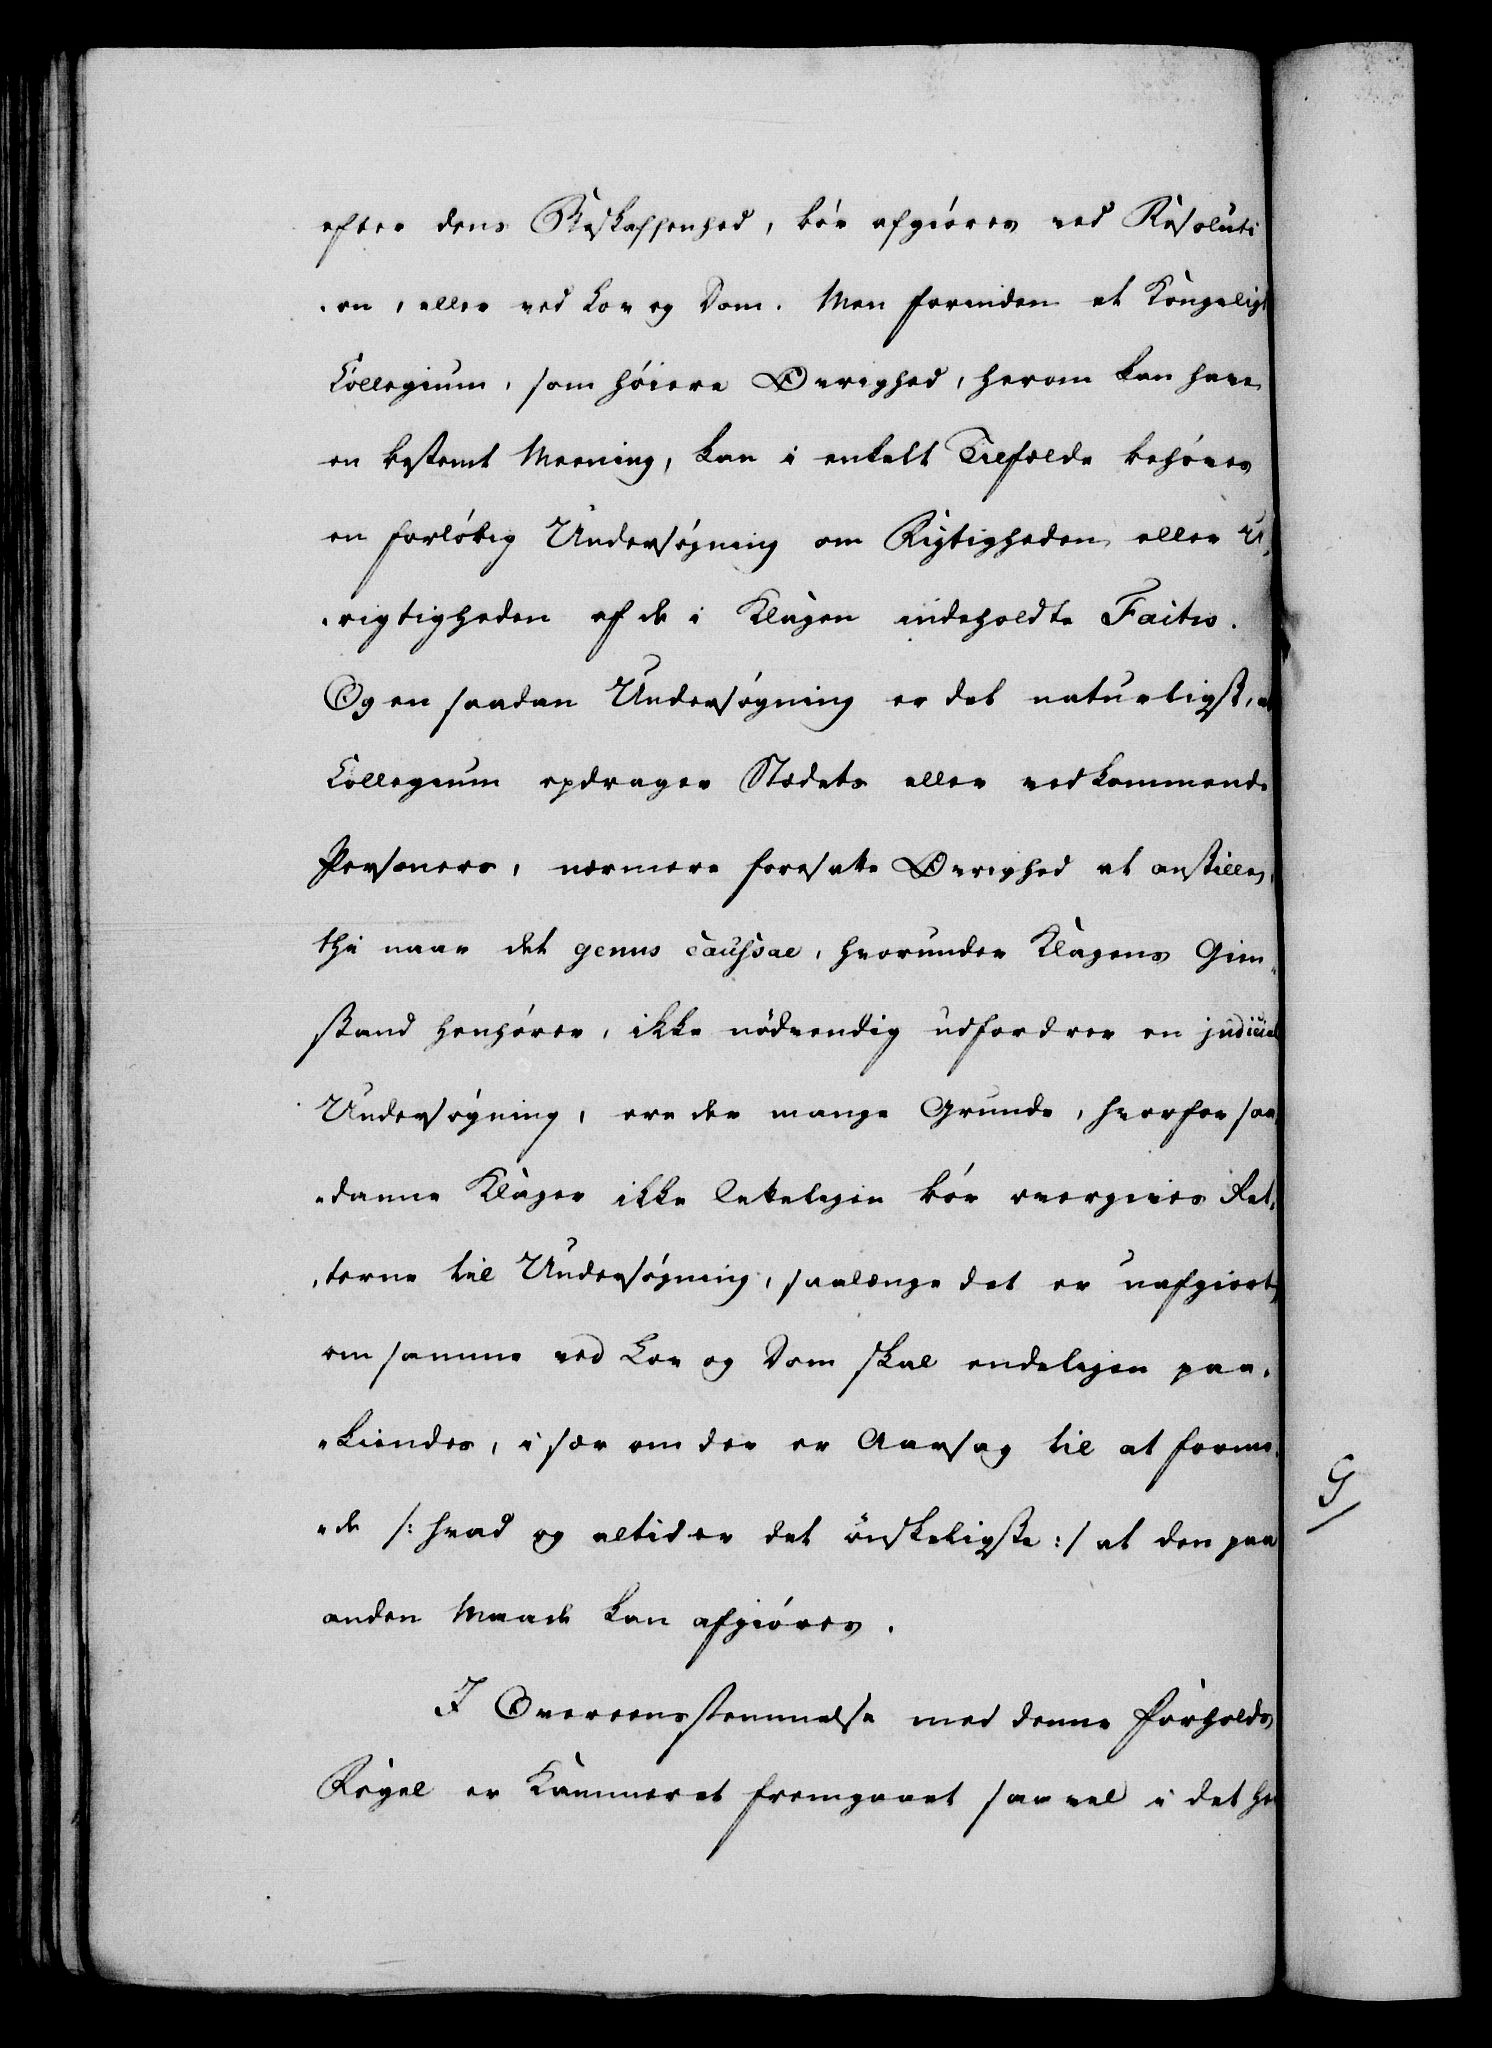 efter dens Beskaffenhed, bør afgiøres ved Resoluti
-on, eller ved Lov og Dom. Men forinden et Kongeligt
Collegium, som høiere Øvrighed, herom kan have
en bestemt Meening, kan i enkelt Tilfælde behøves
en forløbig Undersøgning om Rigtigheden eller U-
-rigtigheden af de i Klagen indeholdte Faitis.
Og en saadan Undersøgning er det naturligst, at
Collegium opdrager Stædets eller vedkommende
Personers, nærmere foresatte Øvrighed at anstille,
thi naar det genus caussae, hvorunder Klagens Gien-
stand henhører, ikke nödvendig udfordrer en judiciel
Undersøgning, ere der mange Grunde, hvorfor saa-
-danne Klager ikke letteligen bør overgives Ret-
-terne til Undersøgning, saalænge det er uafgiort,
om samme ved Lov og Dom skal endeligen paa-
-kiendes, i sær om der er Aarsag til at formo-
-de /: hvad og altid er det ønskeligste :/ at den paa
anden Maade kan afgiøres.
I Overeensstemmelse med denne Forholds
Regel er Kammeret fremgaaet saavel i det he